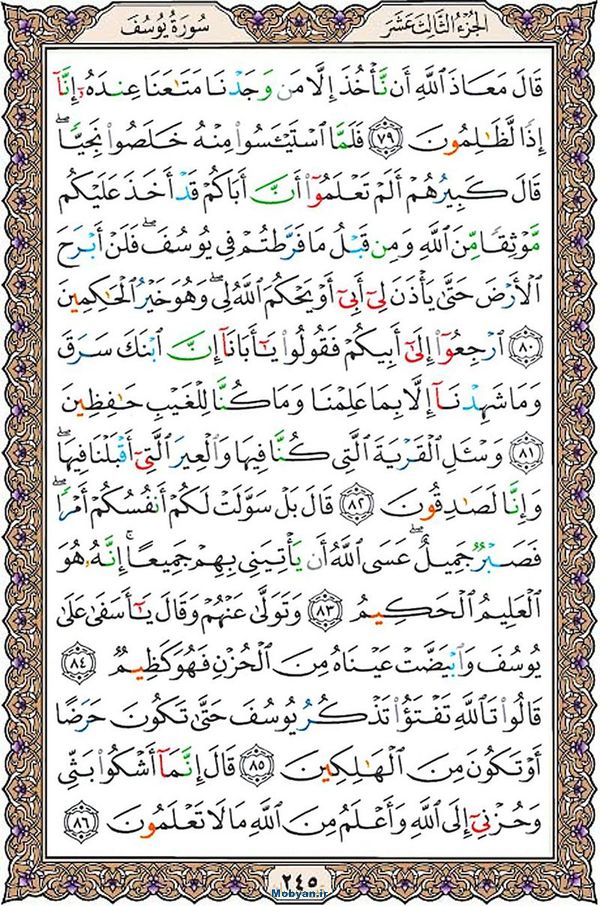 الجزء الثالث عشر
سورة يوسف
قَالَ مَعَاذَ اللَّهِ أَن نَّأْخُذَ إِلَّا مَن وَجَدْنَا مَتَاعَنَا عِندَهُ إِنَّا
إِذًا لَّظَالِمُونَ ٧٩ فَلَمَّا اسْتَيْئَسُوا مِنْهُ خَلَصُوا نَجِيًّا ۖ
قَالَ كَبِيرُهُمْ أَلَمْ تَعْلَمُوا أَنَّ أَبَاكُمْ قَدْ أَخَذَ عَلَيْكُم
مَّوْثِقًا مِّنَ اللَّهِ وَمِن قَبْلُ مَا فَرَّطتُمْ فِي يُوسُفَ ۖ فَلَنْ أَبْرَحَ
الْأَرْضَ حَتَّىٰ يَأْذَنَ لِي أَبِي أَوْ يَحْكُمَ اللَّهُ لِي ۖ وَهُوَ خَيْرُ الْحَاكِمِينَ
٨٠ ارْجِعُوا إِلَىٰ أَبِيكُمْ فَقُولُوا يَا أَبَانَا إِنَّ ابْنَكَ سَرَقَ
وَمَا شَهِدْنَا إِلَّا بِمَا عَلِمْنَا وَمَا كُنَّا لِلْغَيْبِ حَافِظِينَ
٨١ وَسْئَلِ الْقَرْيَةَ الَّتِي كُنَّا فِيهَا وَالْعِيرَ الَّتِي أَقْبَلْنَا فِيهَا ۖ
وَإِنَّا لَصَادِقُونَ ٨٢ قَالَ بَلْ سَوَّلَتْ لَكُمْ أَنفُسُكُمْ أَمْرًا ۖ
فَصَبْرٌ جَمِيلٌ ۖ عَسَى اللَّهُ أَن يَأْتِيَنِي بِهِمْ جَمِيعًا ۚ إِنَّهُ هُوَ
الْعَلِيمُ الْحَكِيمُ ٨٣ وَتَوَلَّىٰ عَنْهُمْ وَقَالَ يَا أَسَفَىٰ عَلَىٰ
يُوسُفَ وَابْيَضَّتْ عَيْنَاهُ مِنَ الْحُزْنِ فَهُوَ كَظِيمٌ ٨٤
قَالُوا تَاللَّهِ تَفْتَؤُا تَذْكُرُ يُوسُفَ حَتَّىٰ تَكُونَ حَرَضًا
أَوْ تَكُونَ مِنَ الْهَالِكِينَ ٨٥ قَالَ إِنَّمَا أَشْكُوا بَثِّي
وَحُزْنِي إِلَى اللَّهِ وَأَعْلَمُ مِنَ اللَّهِ مَا لَا تَعْلَمُونَ ٨٦
٢٤٥
Mobyan.ir